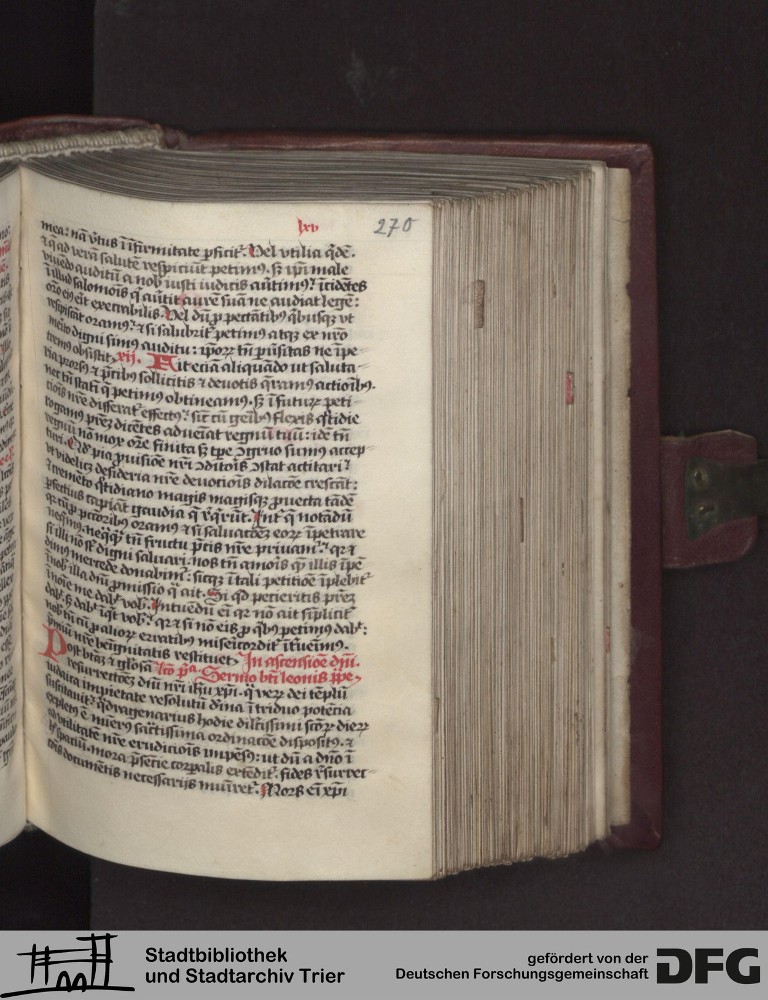 lxv 270
mea: nā v̄tus ī īfirmitate ꝑficiẗ. Vel vtilia q̄dē.
⁊ q̄ ad verā salutē respiciūt petimꝰ. sꝫ ip̄i male
viuēdo auditū a nob iusti iudicis au̅timꝰ: īcidētes
ī illud salomoīs q̄ au̅tit aurē suā ne audiat legē:
oꝛo eiꝰ eit execrabilis. Vel dū ꝓ pctātibꝰ qͥbusqꝫ vt
resipiscāt oramꝰ: ⁊ si salubriẗ petimꝰ atqꝫ ex nr̄o
meīto digni simꝰ auditu: ip̄oꝝ tn̄ ꝑuīsitas ne īpe-
tremꝰ obsistit. xij. Fit eciā aliquādo ut saluta-
ria prorsꝰ ⁊ p̄cibꝰ sollicitis ⁊ deuotis q̄ramꝰ actiōibꝰ.
nec tn̄ statī q̄ petimꝰ obtineamꝰ. sꝫ ī futuꝝ peti-
tiōis nr̄e differat effectꝰ: sic̄ cū genibꝰ flexis qͦtidie
rogamꝰ prēꝫ dicētes adueniat regnū tuū: idē tn̄
regnū nō mox oꝛōe finita sꝫ tꝑe ꝯgruo sumꝰ accep-
turi. Qd̄ pia ꝓuisiōe nr̄i ꝯditoris ꝯstat actitari:
vt videlicꝫ desideria nr̄e deuotiōis dilatōe crescāt:
⁊ cremēto qͦtidiano magis magisqꝫ ꝓuecta tādē
ꝑfectius capiāt gaudia q̄ r̄qrūt. Int̄ q̄ notādū
qꝛ cū ꝓ pctōribꝰ oramꝰ ⁊ si saluatōeꝫ eoꝝ īpetrare
neqimꝰ. neqꝫ tn̄ fructu p̄cis nr̄e priuamͬ: qꝛ ⁊
si illi nō sͭ digni saluari. nos tn̄ amoris qͫ illis īpē-
dimꝰ mercede donabimͬ: sicqꝫ ī tali petitiōe īplebitͬ
nob illa dn̄i ꝓmissio q̄ ait. Si qd̄ petieritis prēꝫ
ī noīe meo dabͭ vob. Intuēdū ei̅ qꝛ nō ait sīplicit̄
dabͭ. sꝫ dabͭ īqͭ vob: qꝛ ⁊ si nō eis ꝓ qͥbꝰ petimꝰ dabͭ:
nob tn̄ cū ꝓ alioꝝ erratibꝰ misericordit̄ īt̄uenimꝰ.
p̄miū nr̄e benignitatis restituet. In ascensiōe dn̄i.
Post btāꝫ ⁊ glōsā lc̄o pͣ. Sermo bt̄i leonis ppe.
resurrectōeꝫ dn̄i nr̄i ih̄u xp̄i. q̄ veꝝ dei tēplū
iudaica impietate resolutū diuīa ī triduo potētia
suscitauit: qͣdragenarius hodie dilc̄issimi sc̄oꝝ dieꝝ
expletꝰ ē numerꝰ sac̄tissima ordinatōe dispositꝰ. ⁊
ad vtilitatē nr̄e eruditiōis impēsꝰ: ut dū a dn̄o ī
hͨ spaciū. mora p̄sentie corꝑalis extēditͬ. fides r̄surrec-
tōis documētis necessarijs muniretͬ. Mors ei̅ xp̄i
Stadtbibliothek
und Stadtarchiv Trier
gefördert von der
Deutschen Forschungsgemeinschaft
DFG